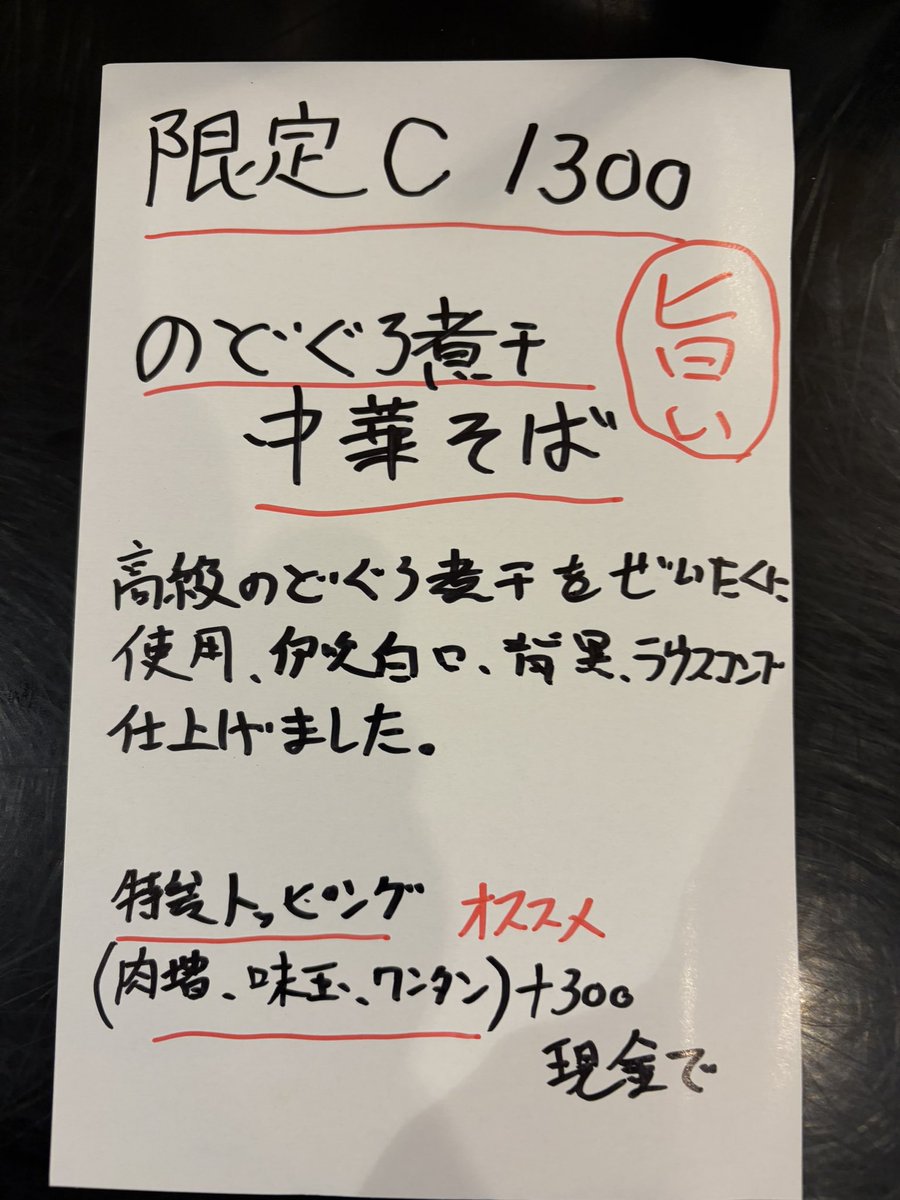 限定C 1300
旨い
のどぐろ煮干
中華そば
高級のどぐろ煮干をぜいたくに
使用、伊吹白口、背黒、ラウスコンブ
仕上げました。
特製トッピング オススメ
(肉増、味玉、ワンタン)+300
現金で